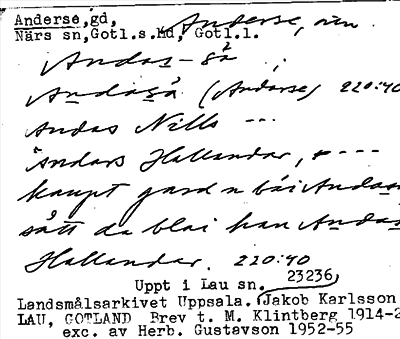 Anderse, gd, Anderse,
Närs sn, Gotl.s. hd, Gotl.l.
Andas-gå
Andaså (Andarse) 220:40
Andas Nills ---
Andars Hallandar, ----
kaupt gard n bäi Andas
sått da blai han Andas
Hallandar. 220:40
Uppt i Lau sn. 23236
Landsmålsarkivet Uppsala. Jakob Karlsson
LAU, GOTLAND Brev t. M. Klintberg 1914-2
exc. av Herb. Gustavson 1952-55